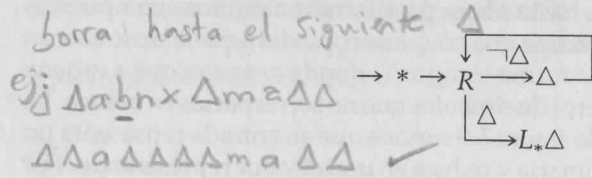 borra hasta el siguiente Δ
ej Δ Δ a b n x Δ m a Δ Δ
Δ Δ a Δ Δ Δ Δ m a Δ Δ ✓
→ * → R → Δ
¬Δ
Δ
→ L*Δ